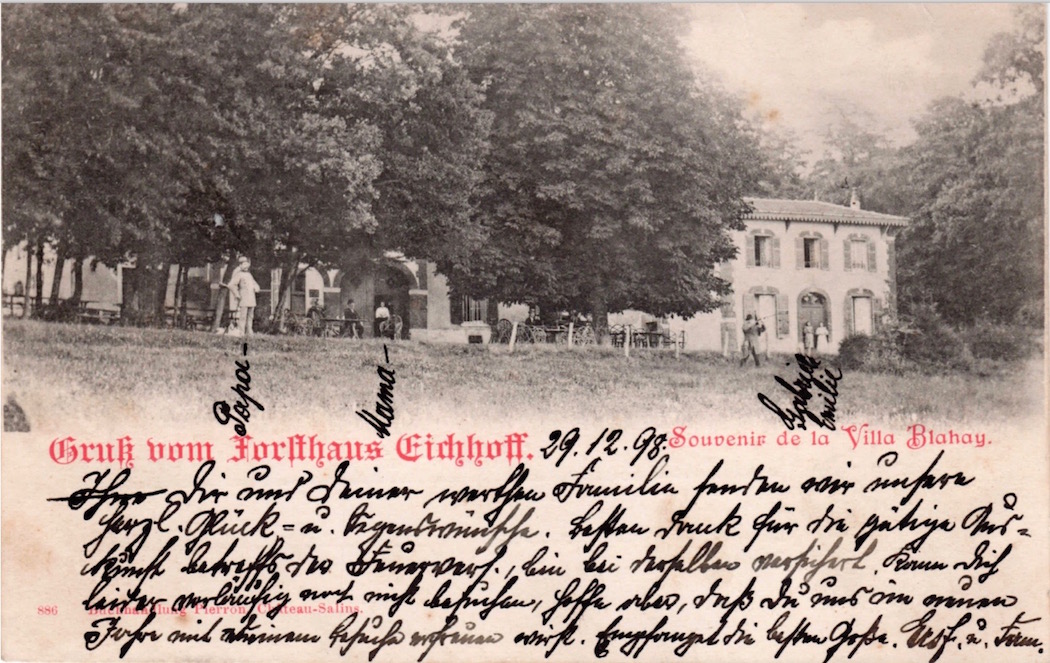 Papa –
Mama –
Emilie
Gruß vom Forsthaus Eichhoff.
29.12.98.
Souvenir de la Villa Blahay.
Dir und Deiner werthen Familie senden wir unsere
herzl. Glück= u. Segenswünsche. Besten Dank für die gütige Aus=
kunft betreffs der Feuervers., bin bei derselben versichert. Kann Dich
leider vorläufig noch nicht besuchen, hoffe aber, daß Du uns im neuen
Jahre mit Deinem Besuche erfreuen wirst. Empfanget die besten Grüße. u. Fam.
886 Buchhandlung Pierron, Château-Salins.